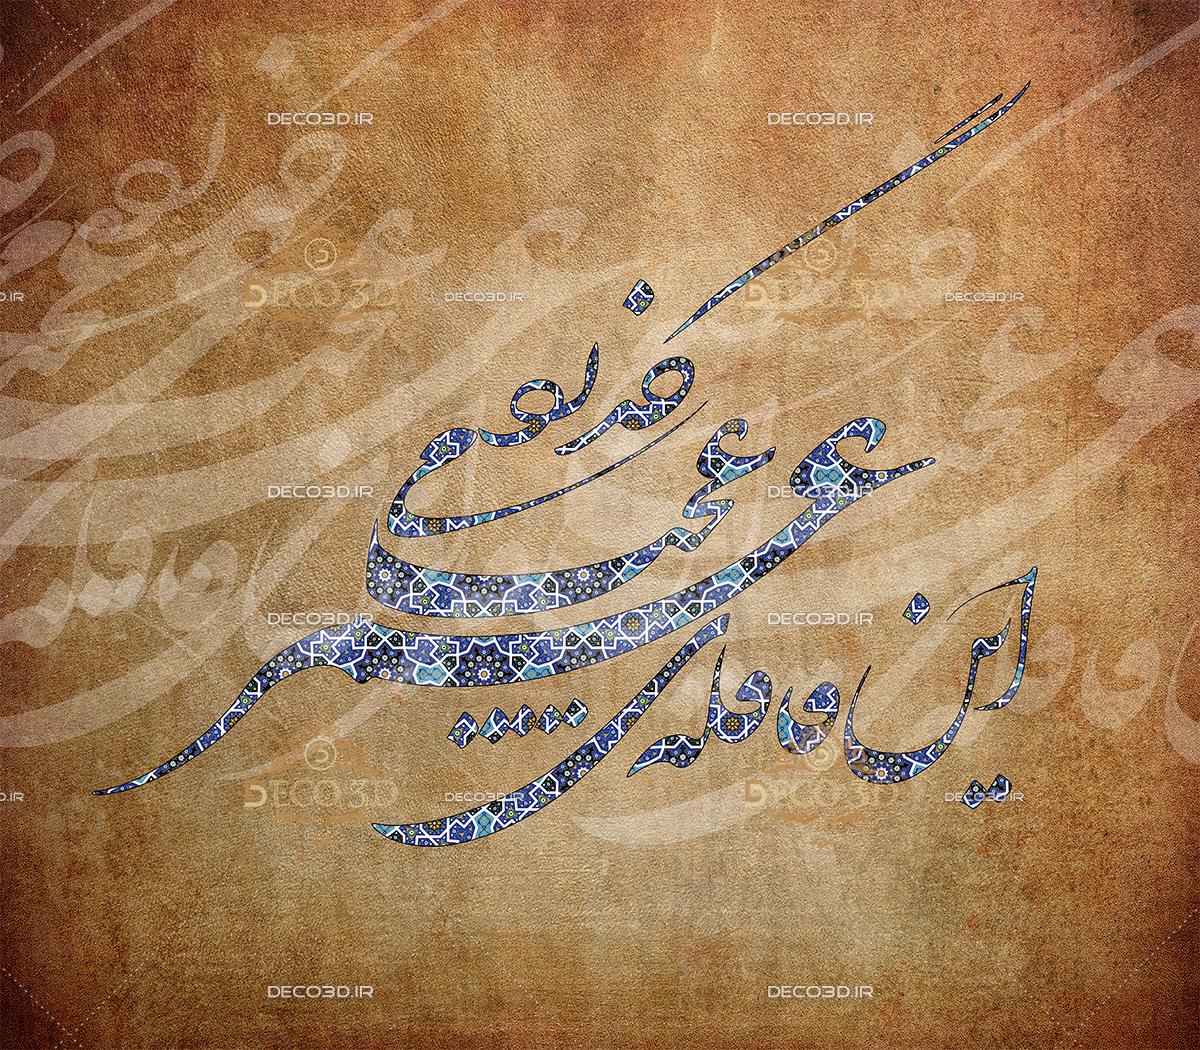 DECO3D.IR DECO3D.IR
DECO3D DECO3D.IR DECO3D DECO3D.IR
این قافله عمر عجب میگذرد
DECO3D.IR DECO3D.IR
DECO3D.IR DECO3D.IR
DECO3D DECO3D.IR DECO3D DECO3D.IR
DECO3D.IR DECO3D.IR